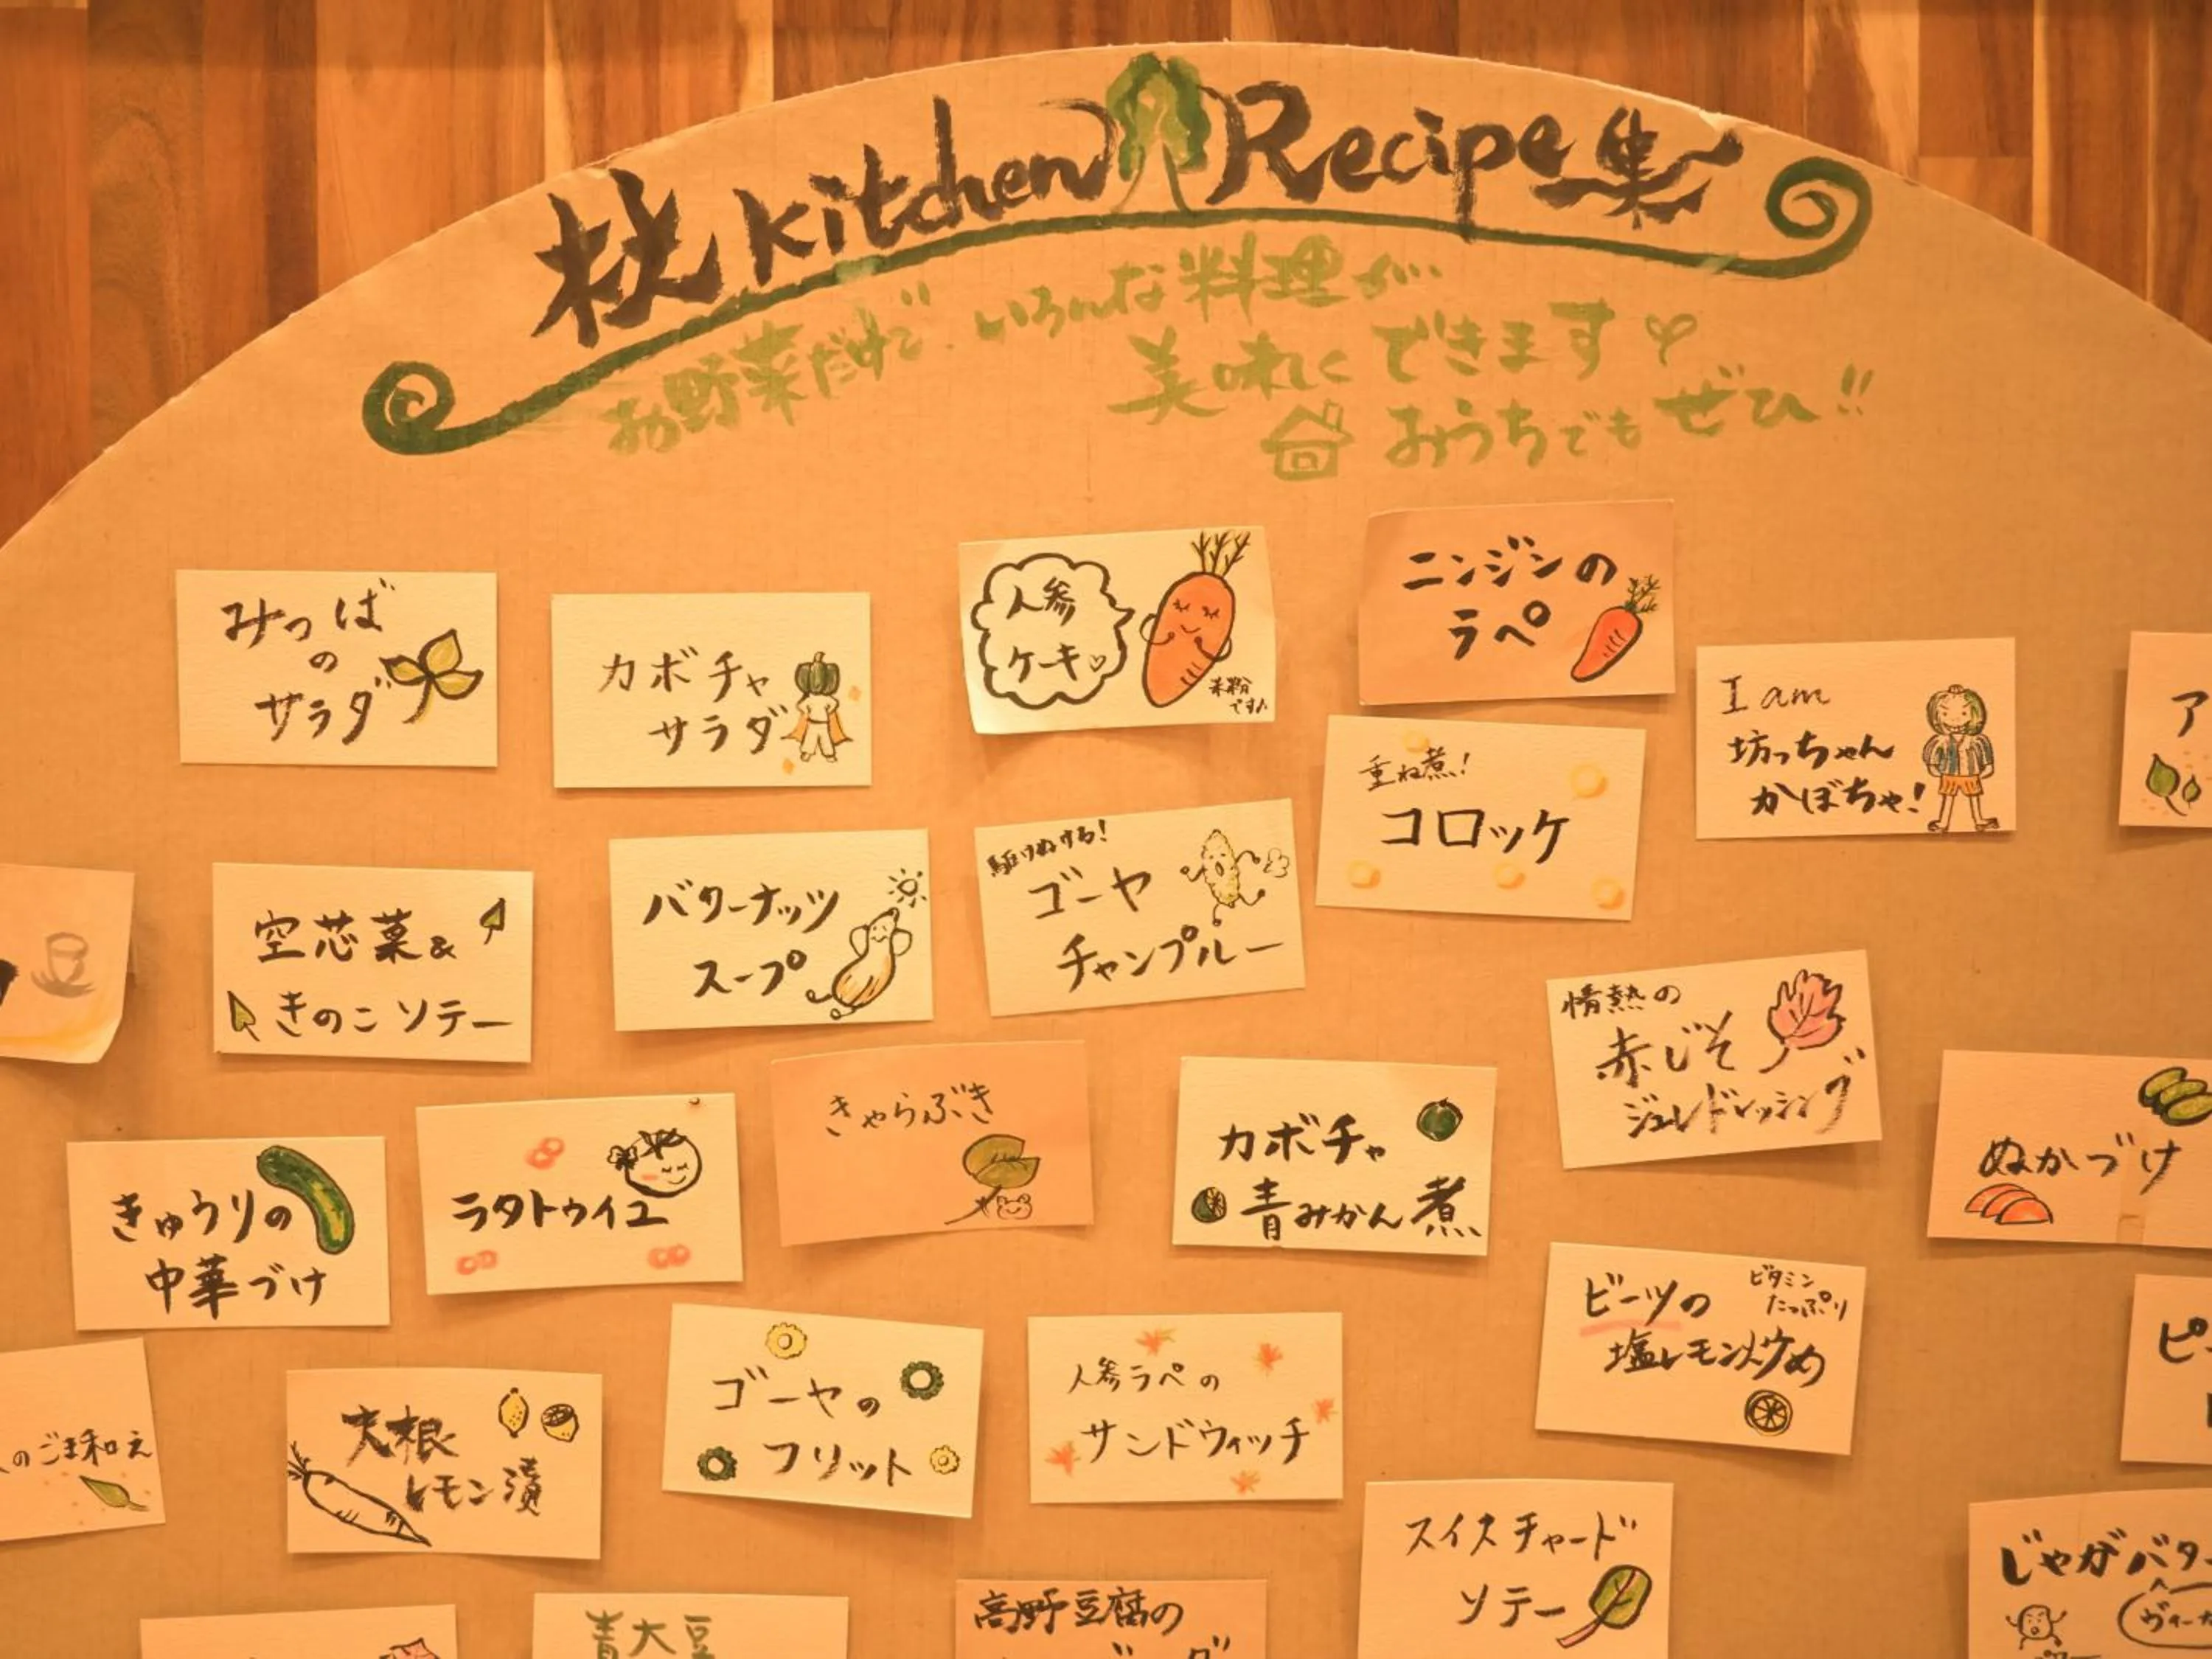 杜 Kitchen Recipe集
お野菜だけで、いろんな料理が…
美味しくできます
おうちでもぜひ!!
みつば
の
サラダ
カボチャ
サラダ
人参
ケーキ♡
米粉
です♪
ニンジンの
ラペ
I am
坊っちゃん
かぼちゃ!
ア
重ね煮!
コロッケ
空芯菜&
きのこソテー
バターナッツ
スープ
駆けぬける!
ゴーヤ
チャンプルー
情熱の
赤じそ
ジュレドレッシング
きゅうりの
中華づけ
ラタトゥイユ
きゃらぶき
カボチャ
青みかん煮
ぬかづけ
ビーツの
ビタミン
たっぷり
塩レモン炒め
のごま和え
大根
レモン漬
ゴーヤの
フリット
人参ラペの
サンドウィッチ
ピ
スイスチャード
ソテー
じゃがバタ
ヴィー
青大豆
高野豆腐の